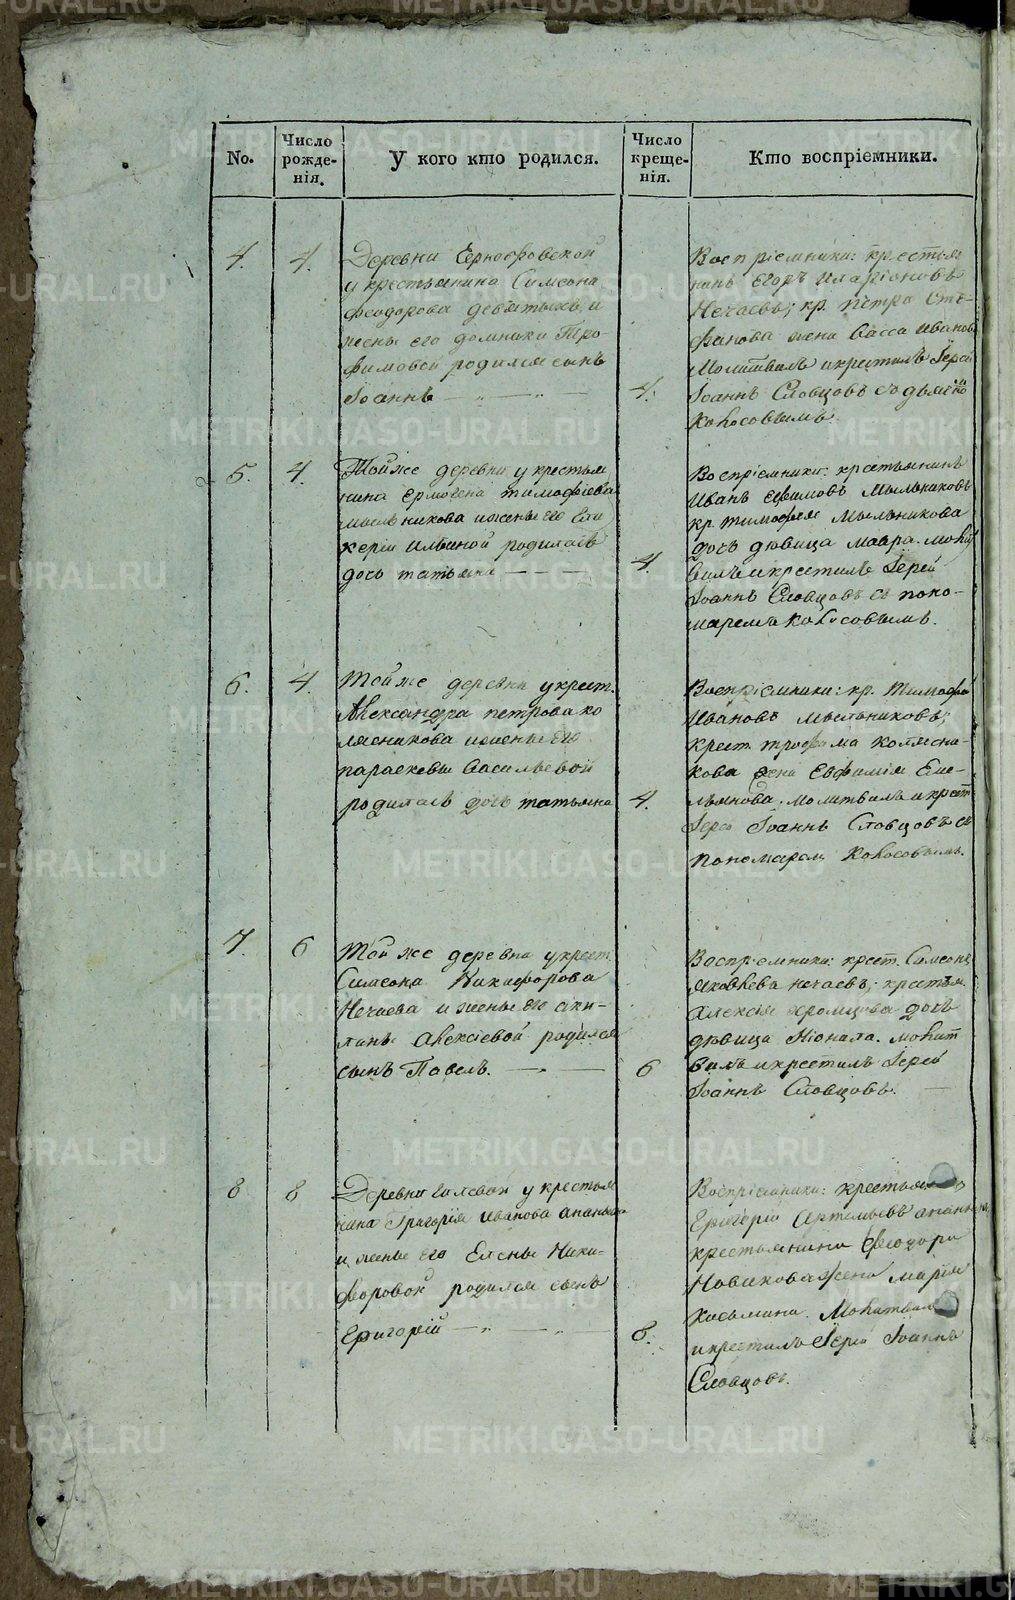 No.
Число рожде-нія.
У кого кто родился.
Число креще-нія.
Кто воспріемники.
4. 4.
Деревни
у крестьянина Симеона
Феодорова девятыхъ, и
жены его домники Тро-
фимовой родился сынъ
Іоаннъ
4.
Воспріемники: крестья
нинъ Егоръ Иларіоновъ
Нечаевъ; кр. петра Сте-
фанова жена Васса Иванов
Молитвилъ и крестилъ Іерей
Іоаннъ Словцовъ съ
5. 4.
Той же деревни у крестья
нина ермогена тимофеева
мыльникова и жены его Гли
керіи Ильиной родилась
дочь татьяна
4.
Воспріемники: крестьянинъ
Иванъ Ефимовъ Мыльниковъ
кр тимофея Мыльникова
дочь девица мавра. моли
вилъ и крестилъ Іерей
Іоаннъ Словцовъ съ поно-
маремъ
6. 4.
Той же деревни у крест.
Александра петрова ко
лясникова и жены его
параскевы Васильевой
родилась дочь татьяна
4.
Воспріемники: кр. Тимофей
Ивановъ мыльниковъ;
крест. трофима колясни-
кова жена Евфимія Еме-
льянова. молитвилъ и крест
Іерей Іоаннъ Словцовъ съ
пономарем
7. 6
Той же деревни у крест.
Симеона Никифорова
Нечаева и жены его аки-
лины Алексіевой родился
сынъ Павелъ.
6
Воспріемники: крест. Симеонъ
яковлева нечаевъ; крестья.
Алексія дочь
девица молит
вилъ и крестилъ Іерей
Іоаннъ Словцовъ.
8 8
Деревни у крестья
нина Григорія Иванова
и жены его Елены Ники-
форовой родился сынъ
Григорій
8.
Воспріемники: крестьян
Григорій Артемьевъ
крестьянина Феодора
Новикова жена марія
косьмина. Молитвилъ
и крестилъ Іерей Іоаннъ
Словцовъ.
METRIKI.GASO-URAL.RU